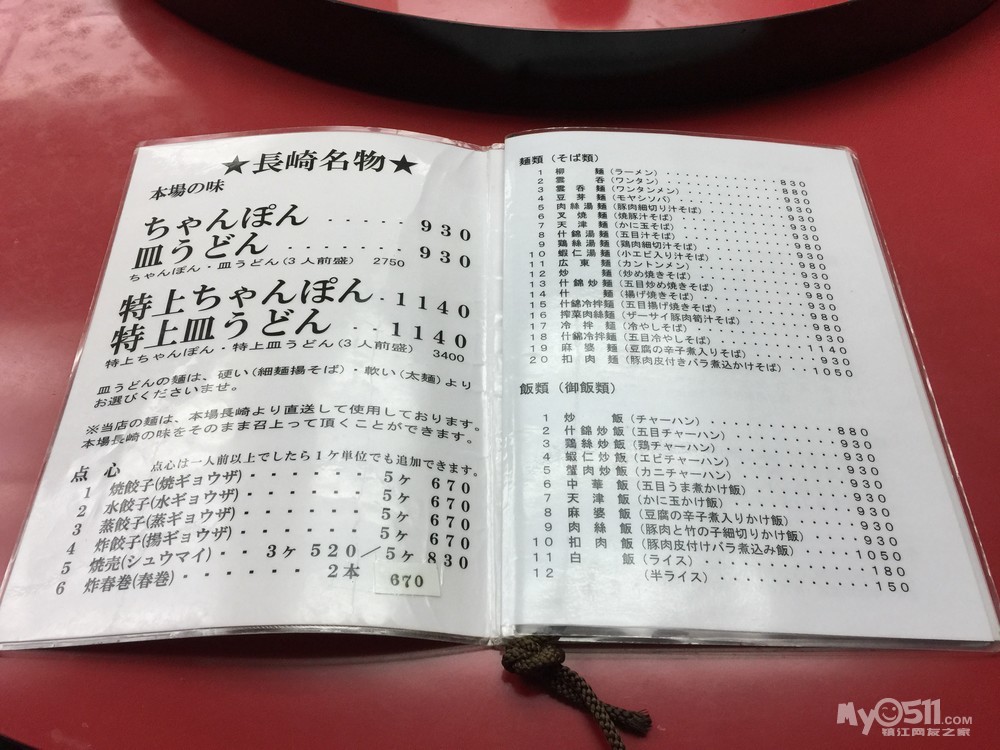 ★長崎名物★
本場の味
ちゃんぽん ・・・・・・ 930
皿うどん ・・・・・・・・ 930
ちゃんぽん・皿うどん(3人前盛) 2750
特上ちゃんぽん・1140
特上皿うどん ・・1140
特上ちゃんぽん・特上皿うどん(3人前盛) 3400
皿うどんの麺は、硬い(細麺揚そば)・軟い(太麺)より
お選びくださいませ。
※当店の麺は、本場長崎より直送して使用しております。
本場長崎の味をそのまま召上って頂くことができます。
点心 点心は一人前以上でしたら1ケ単位でも追加できます。
1 焼餃子(焼ギョウザ)・・・・・・5ケ 670
2 水餃子(水ギョウザ)・・・・・・5ケ 670
3 蒸餃子(蒸ギョウザ)・・・・・・5ケ 670
4 炸餃子(揚ギョウザ)・・・・・・5ケ 670
5 焼売(シュウマイ)・・3ケ 520/5ケ 830
6 炸春巻(春巻)・・・・・・・2本 670
麺類(そば類)
1 柳麺(ラーメン)・・・・・・・830
2 雲呑(ワンタン)・・・・・・・880
3 雲呑麺(ワンタンメン)・・・・・・・930
4 豆芽麺(モヤシソバ)・・・・・・・930
5 肉絲湯麺(豚肉細切り汁そば)・・・・・・・930
6 叉焼麺(焼豚汁そば)・・・・・・・930
7 天津麺(かに玉そば)・・・・・・・930
8 什錦湯麺(五目汁そば)・・・・・・・980
9 鶏絲湯麺(鶏肉細切汁そば)・・・・・・・980
10 蝦仁湯麺(小エビ入り汁そば)・・・・・・・930
11 広東麺(カントンメン)・・・・・・・930
12 炒麺(炒め焼きそば)・・・・・・・930
13 什錦炒麺(五目炒め焼きそば)・・・・・・・980
14 什麺(揚げ焼きそば)・・・・・・・930
15 什錦冷拌麺(五目揚げ焼きそば)・・・・・・・980
16 搾菜肉絲麺(ザーサイ豚肉筍汁そば)・・・・・・・980
17 冷拌麺(冷やしそば)・・・・・・・930
18 什錦冷拌麺(五目冷やしそば)・・・・・・・1140
19 麻婆麺(豆腐の辛子煮入りそば)・・・・・・・930
20 扣肉麺(豚肉皮付きバラ煮込かけそば)・・1050
飯類(御飯類)
1 炒飯(チャーハン)・・・・・・・880
2 什錦炒飯(五目チャーハン)・・・・・・・930
3 鶏絲炒飯(鶏チャーハン)・・・・・・・930
4 蝦仁炒飯(エビチャーハン)・・・・・・・930
5 蟹肉炒飯(カニチャーハン)・・・・・・・930
6 中華飯(五目うま煮かけ飯)・・・・・・・930
7 天津飯(かに玉かけ飯)・・・・・・・930
8 麻婆飯(豆腐の辛子煮入りかけ飯)・・・・・・・930
9 肉絲飯(豚肉と竹の子細切りかけ飯)・・・・・・・930
10 扣肉飯(豚肉皮付けバラ煮込み飯)・・・・・・・1050
11 白飯(ライス)・・・・・・・180
12 (半ライス)・・・・・・・150
My0511.COM
镇江网友之家